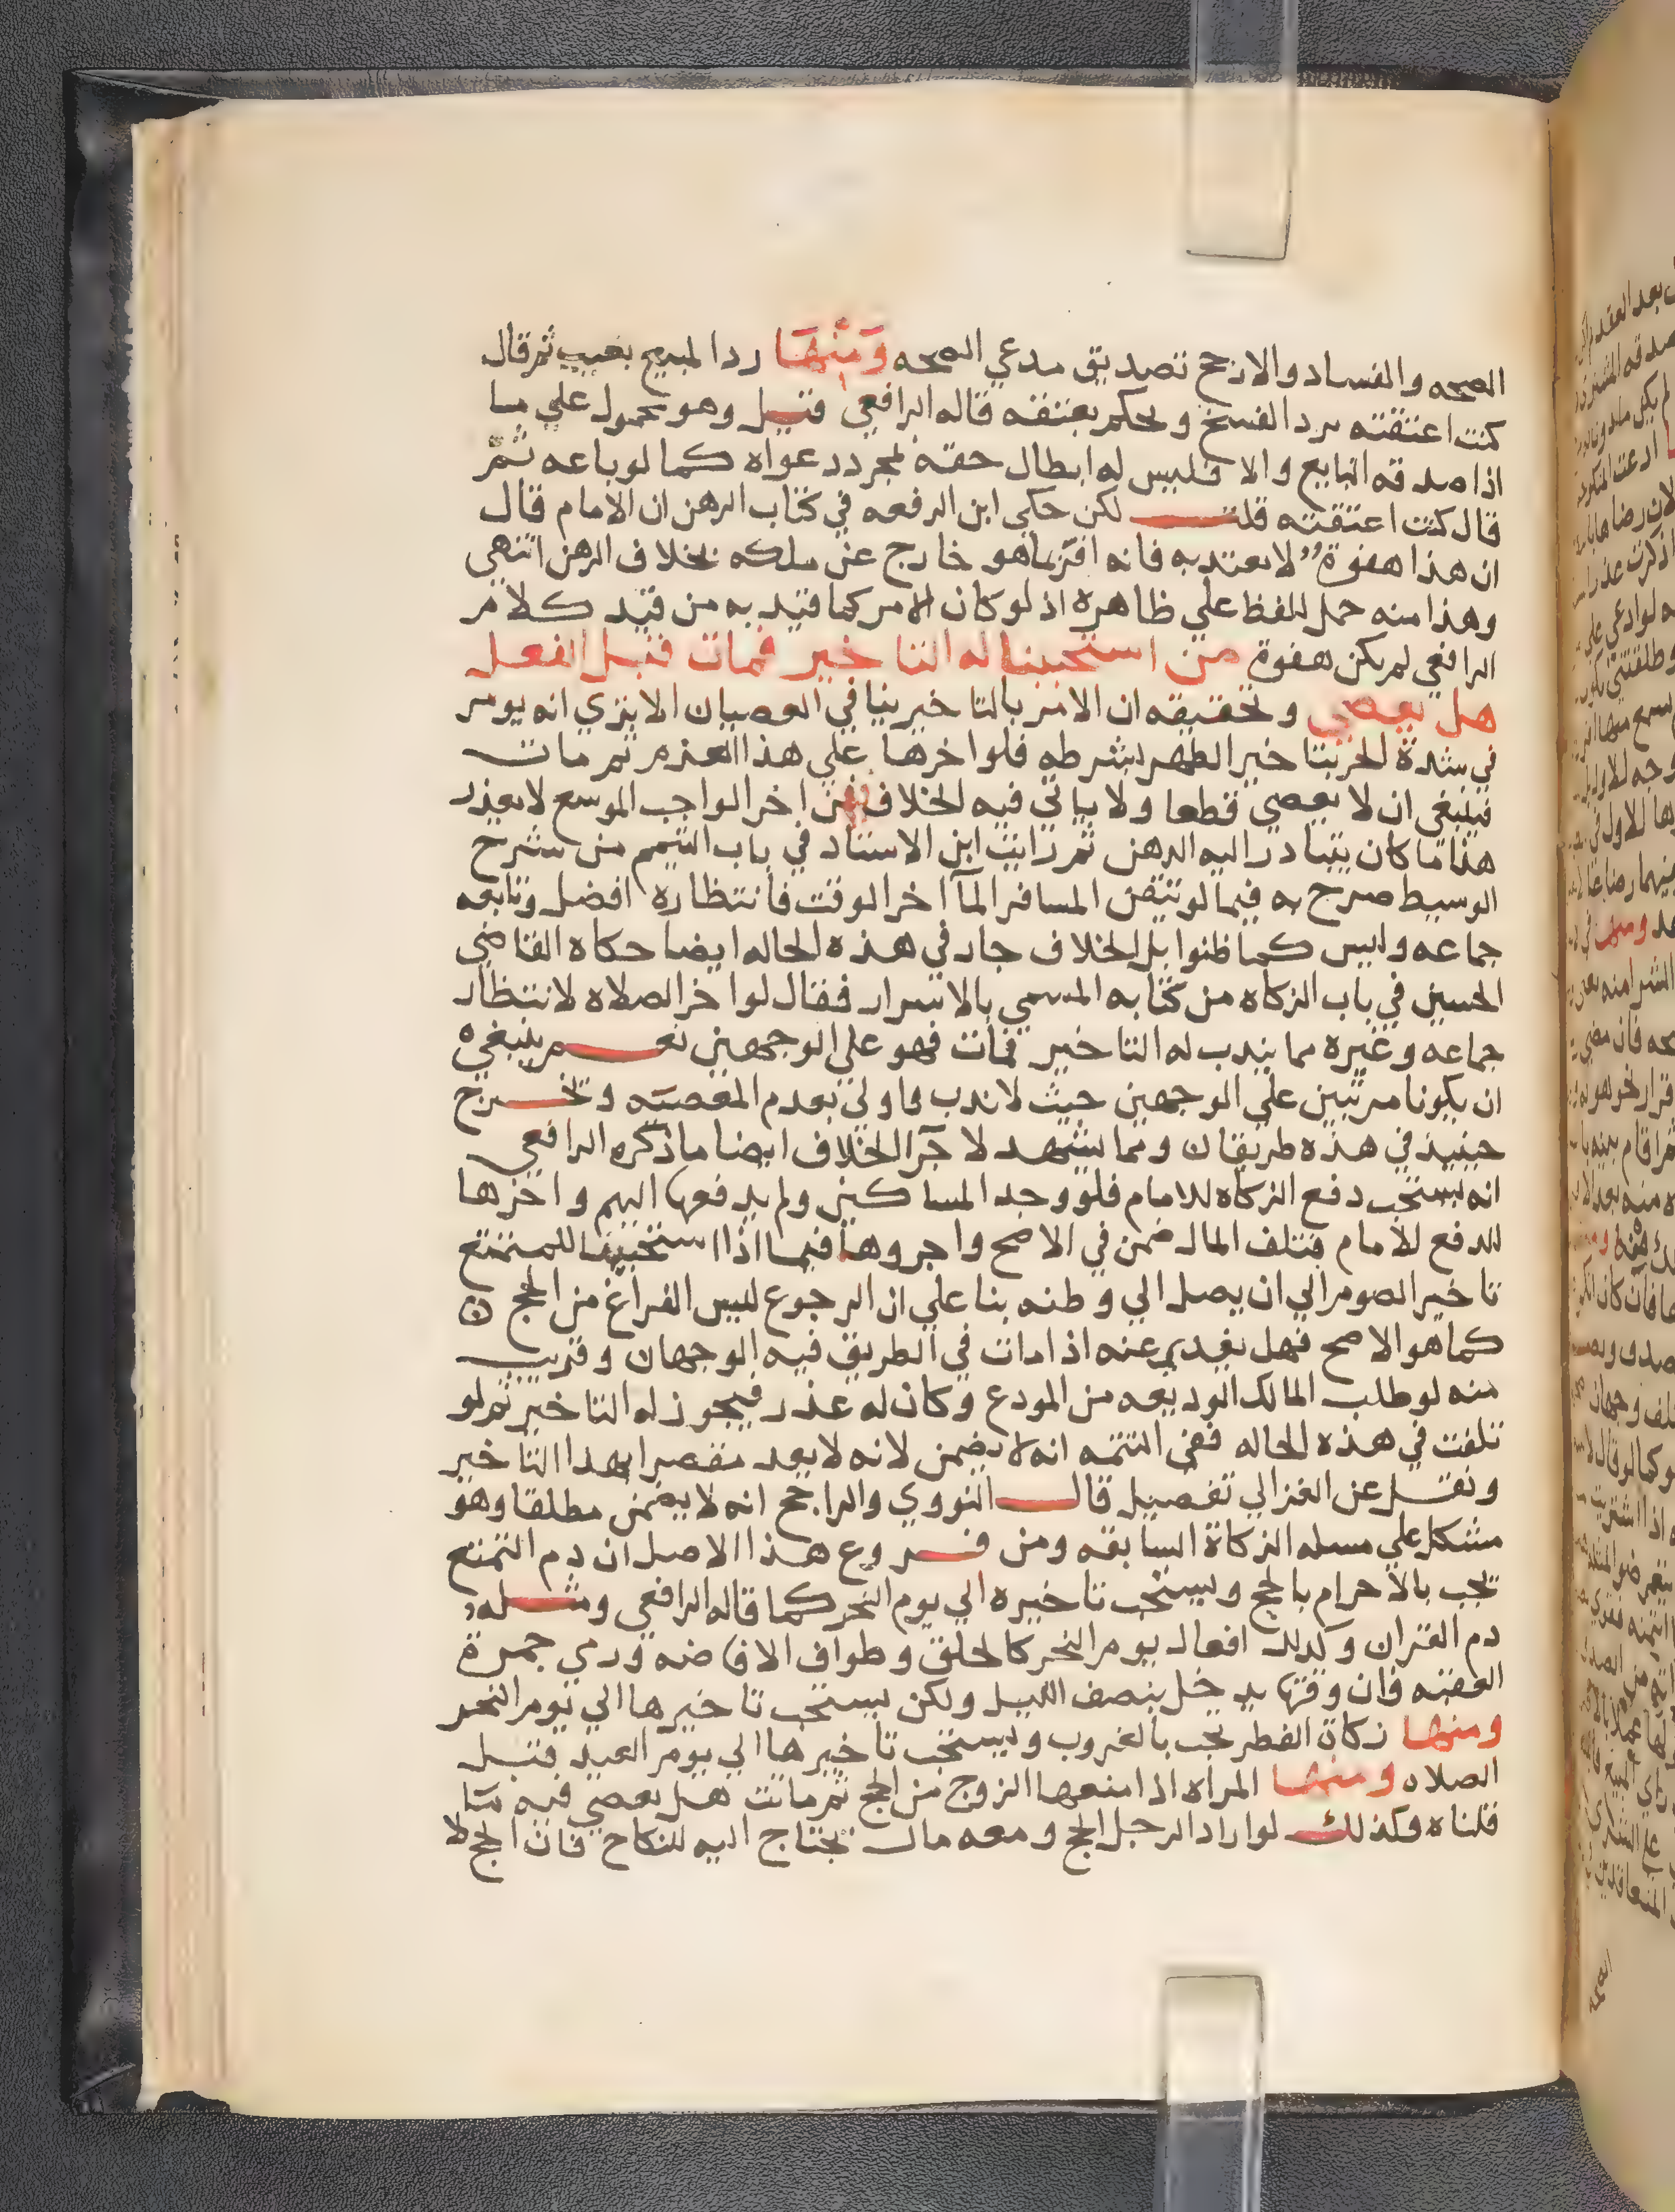 الصحه والفساد والارجح تصديق مدعي الصحه ومنها رد المبيع بعيب ثم قال
كنت اعتقته يرد الفسخ ويحكم بعتقه قاله الرافعي قيل وهو محمول علي ما
اذا صدقه البايع والا فليس له ابطال حقه بمجرد دعواه كما لو باعه ثم
قال كنت اعتقته قلت لكن حكي ابن الرفعه في كتاب الرهن ان الامام قال
ان هذا هفوة لا يعتد به فانه اقر بما هو خارج عن ملكه بخلاف الرهن انتهي
وهذا منه حمل للفظ علي ظاهره اذ لو كان الامر كما قيد به من قيد كلام
الرافعي لم يكن هفوة من استحببنا له التاخير فمات قبل الفعل
هل يعصي وتحقيقه ان الامر بالتاخير ينافي العصيان الا بتري انه يومر
في شدة الحر بتاخير الظهر بشرطه فلو اخرها علي هذا العزم ثم مات
فينبغي ان لا يعصي قطعا ولا ياتي فيه الخلاف فيمن اخر الواجب الموسع لا بعذر
هذا ما كان يتبادر اليه الذهن ثم رايت ابن الاستاد في باب التيمم من شرح
الوسيط صرح به فيما لو تيقن المسافر المآ اخر الوقت فانتظاره افضل وتابعه
جماعه وليس كما ظنوا بل الخلاف جار في هذه الحاله ايضا حكاه القاضي
الحسين في باب الزكاه من كتابه المسمي بالاسرار فقال لو اخر الصلاه لانتظار
جماعه وغيره مما يندب له التاخير فمات فهو علي الوجهين نعم ينبغي
ان يكونا مرتبين علي الوجهين حيث لا ندب واولي بعدم المعصيه ويخرج
حينيذ في هذه طريقان ومما يشهد لاجرآ الخلاف ايضا ما ذكره الرافعي
انه يستحب دفع الزكاه للامام فلو وجد المساكين ولم يدفعها اليهم واخرها
للدفع للامام فتلف المال ضمن في الاصح واجروها فيما اذا استحببنا للمتمتع
تاخير الصوم الي ان يصل الي وطنه بنا علي ان الرجوع ليس الفراغ من الحج
كما هو الاصح فهل يفدي عنه اذا مات في الطريق فيه الوجهان وقريب
منه لو طلب المالك الوديعه من المودع وكان له عذر فيجوز له التاخير ثم لو
تلفت في هذه الحاله ففي التتمه انه لا يضمن لانه لا يعد مقصرا بهذا التاخير
ونقل عن الغزالي تفصيل قال النووي والراجح انه لا يضمن مطلقا وهو
مشكل علي مسله الزكاة السابقه ومن فروع هذا الاصل ان دم التمتع
يجب بالاحرام بالحج ويستحب تاخيره الي يوم النحر كما قاله الرافعي ومثله
دم القران وكدلك افعال يوم النحر كالحلق وطواف الافاضه ورمي جمرة
العقبه فان وقتها يدخل بنصف الليل ولكن يستحب تاخيرها الي يوم النحر
ومنها زكاة الفطر يجب بالغروب ويستحب تاخيرها الي يوم العيد قبل
الصلاه ومنها المراه اذا منعها الزوج من الحج ثم ماتت هل يعصي فيه ما
قلناه وكذلك لو اراد الرجل الحج ومعه مال يحتاج اليه للنكاح فان الحج لا